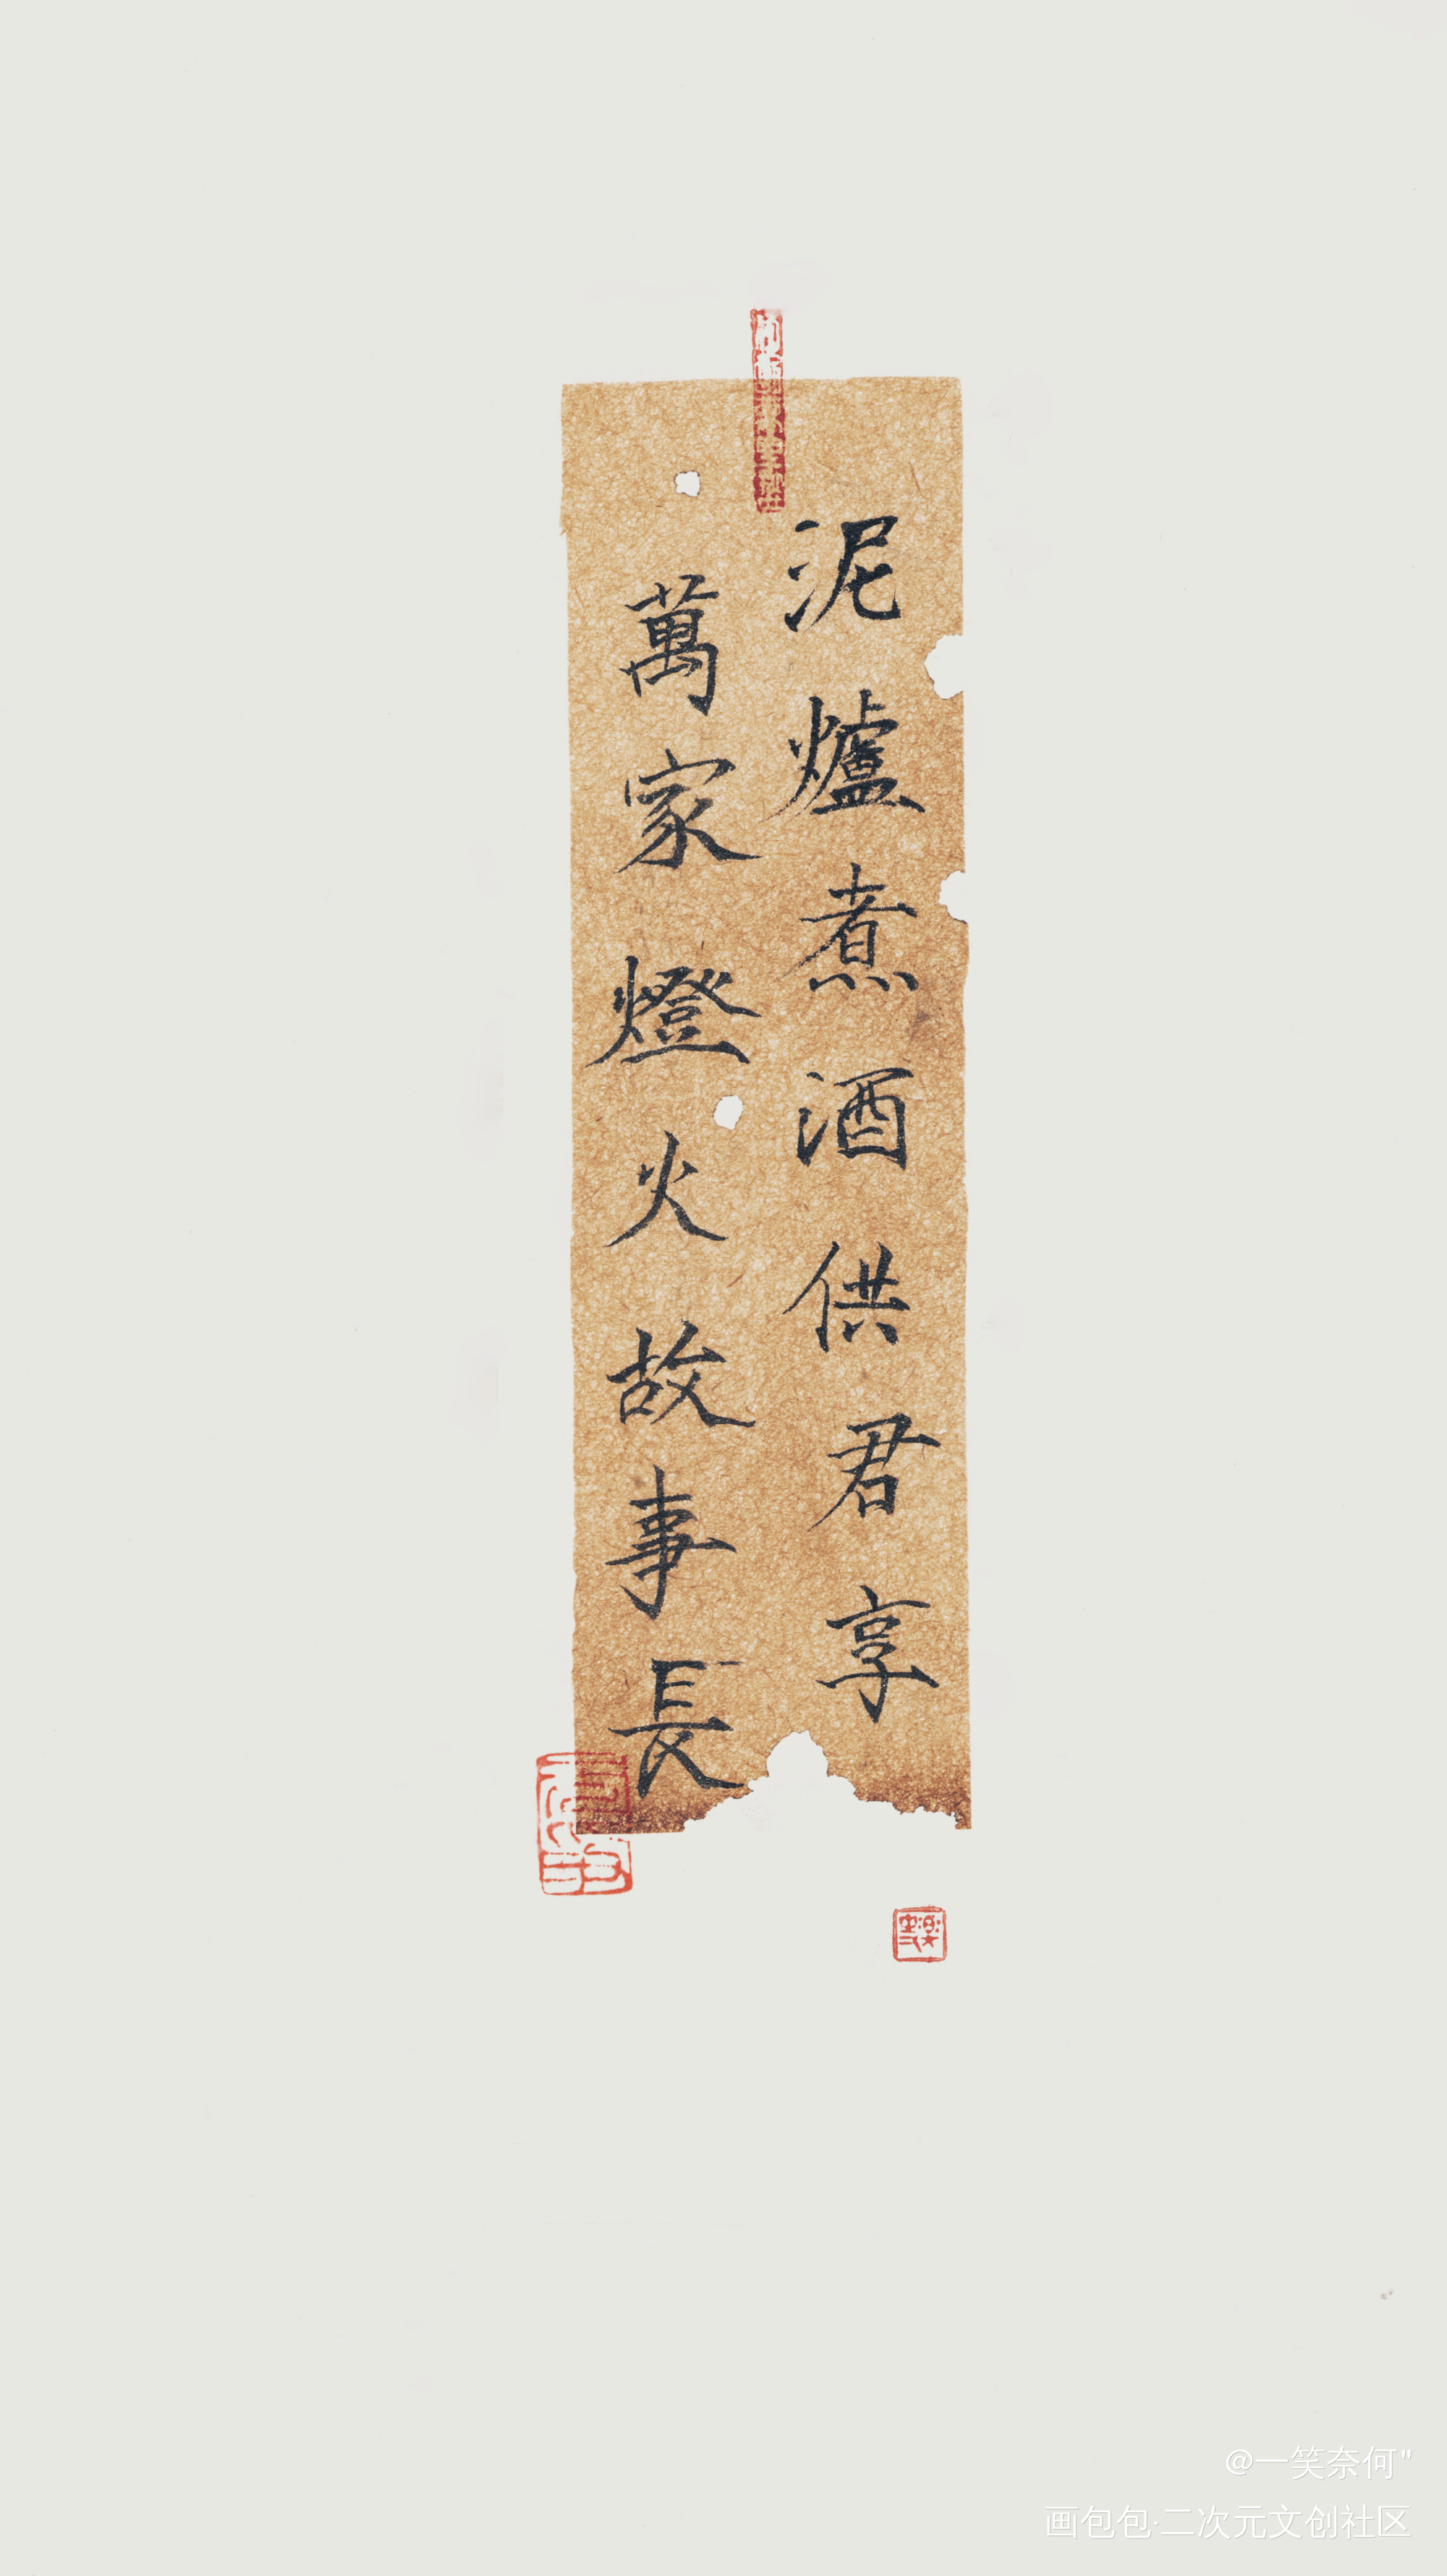 泥爐煮酒供君享
萬家燈火故事長
@一笑奈何"
画包包·二次元文创社区